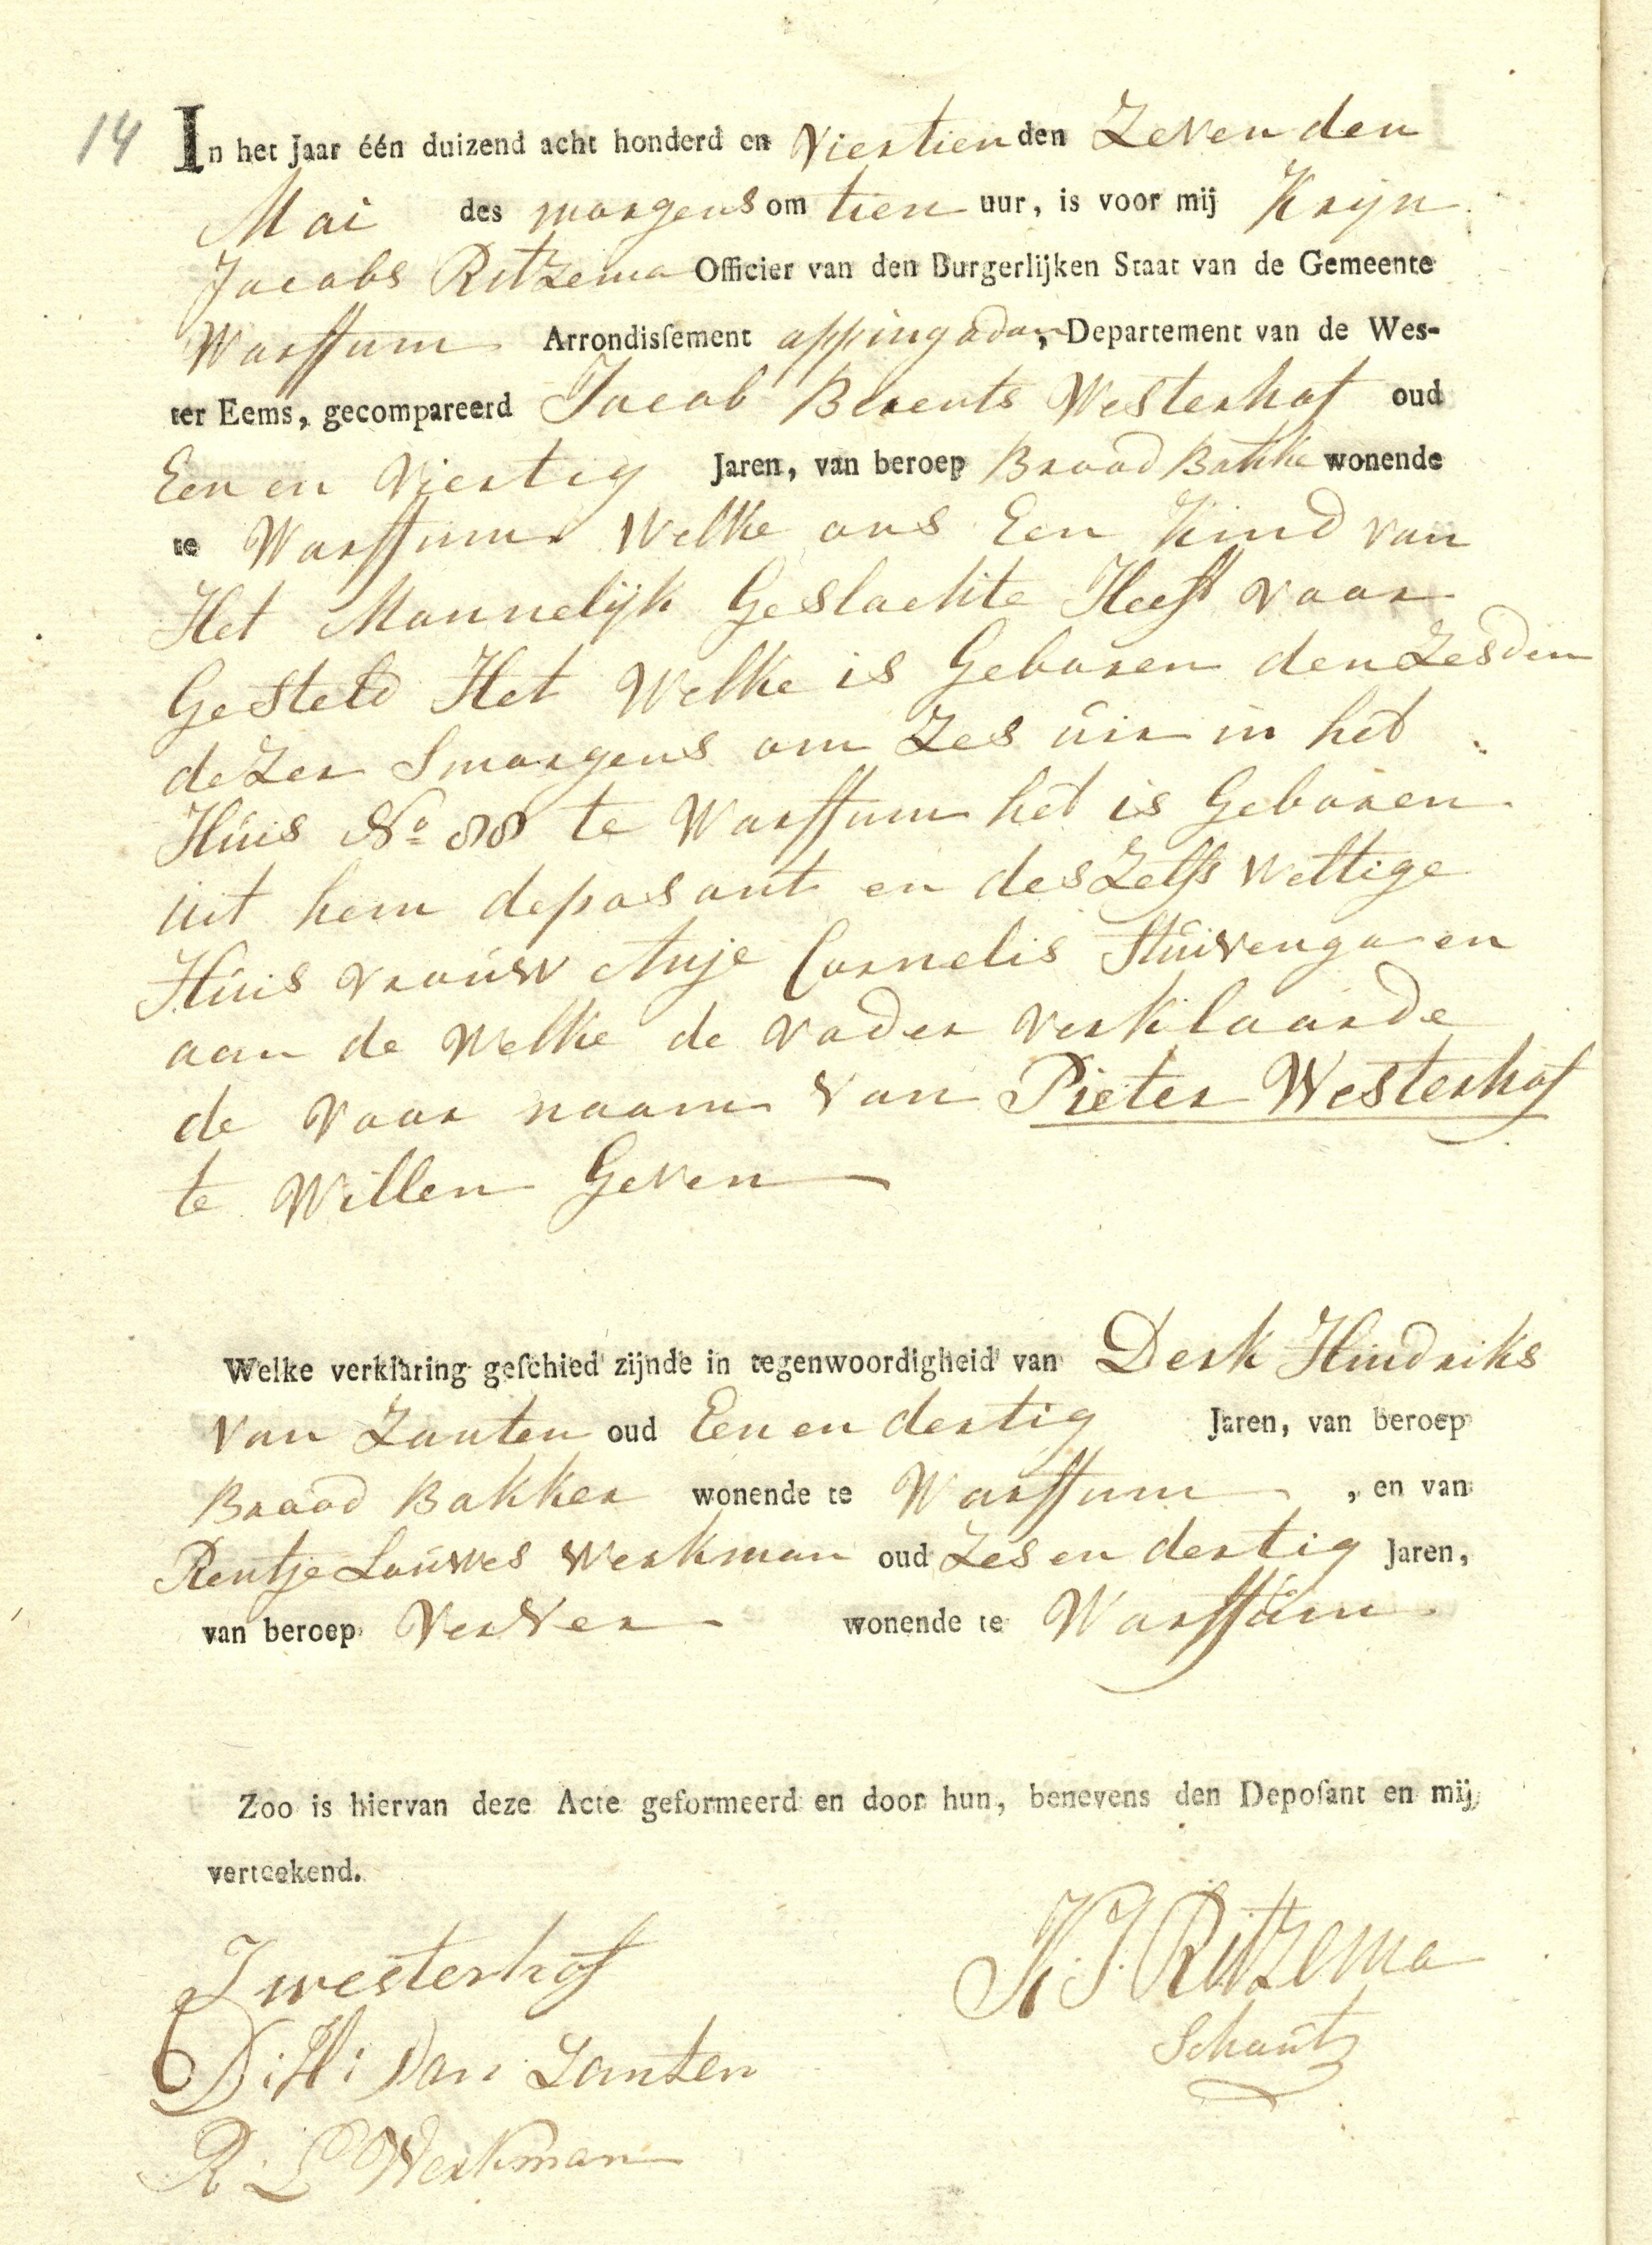 14 In het Jaar één duizend acht honderd en Viertien den Zeven den
Mai des morgens om tien uur, is voor mij Krijn
Jacobs Ritzema Officier van den Burgerlijken Staat van de Gemeente
Warffum Arrondisſement appingadam, Departement van de Wes-
ter Eems, gecompareerd Jacob Berents Westerhof oud
Een en Viertig Jaren, van beroep Brood Bakke wonende
te Warffum Welke ons Een Kind van
Het Mannelijk Geslachte Heeft voor
Gesteld Het Welke is Geboren den Zesden
deZer Smorgens om Zes uir in het
Huis No 88 te Warffum het is Geboren
uit hem deposant en desZelfs Wettige
Huis vrouw Anje Cornelis Stuivenga en
aan de Welke de vader verklaarde
de voor naam van Pieter Westerhof
te Willen Geven
Welke verklaring geſchied zijnde in tegenwoordigheid van Derk Hindriks
Van Zanten oud Een en dertig Jaren, van beroep
Brood Bakker wonende te Warffum, en van
Rentje Louwes Werkman oud Zes en dertig Jaren,
van beroep Verver wonende te Warffum
Zoo is hiervan deze Acte geformeerd en door hun, benevens den Depoſant en mij
verteekend.
J westerhof
K. J. Ritzema
Schout
D: H: Van Zanten
R: L Werkman